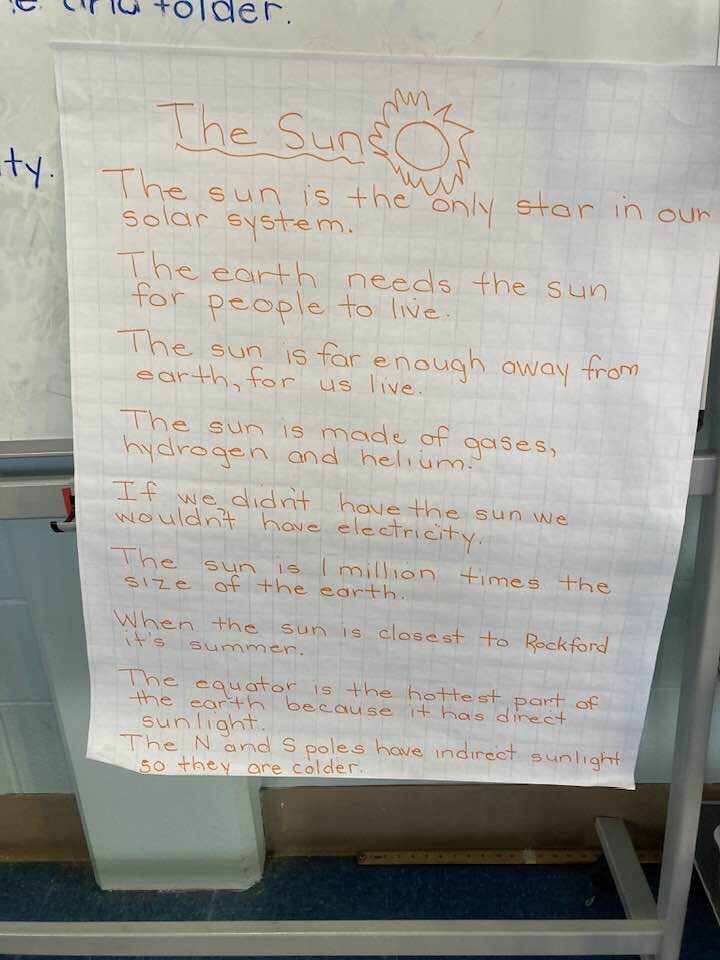 folder.
ty.
The Sun
The sun is the only star in our
solar system.
The earth needs the sun
for people to live.
The sun is far enough away from
earth, for us live.
The sun is made of gases,
hydrogen and helium.
If we didn't have the sun we
wouldn't have electricity.
The sun is 1 million times the
size of the earth.
When the sun is closest to Rockford
it's summer.
The equator is the hottest part of
the earth because it has direct
sunlight.
The N and S poles have indirect sunlight
so they are colder.